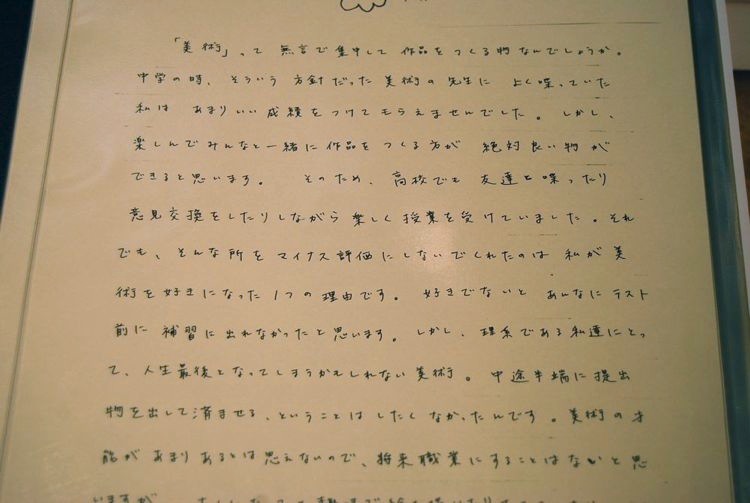 「美術」って無言で集中して作品をつくる物なんでしょうか。
中学の時、そういう方針だった美術の先生によく喋っていた
私はあまりいい成績をつけてもらえませんでした。しかし、
楽しんでみんなと一緒に作品をつくる方が絶対良い物が
できると思います。そのため、高校でも友達と喋ったり
意見交換をしたりしながら楽しく授業を受けていました。それ
でも、そんな所をマイナス評価にしないでくれたのは私が美
術を好きになった1つの理由です。好きでないとあんなにテスト
前に補習に出れなかったと思います。しかし、理系である私達にとっ
て、人生最後となってしまうかもしれない美術。中途半端に提出
物を出して済ませる、ということはしたくなかったんです。美術の才
能があまりあるとは思えないので、将来職業にすることはないと思
いますが